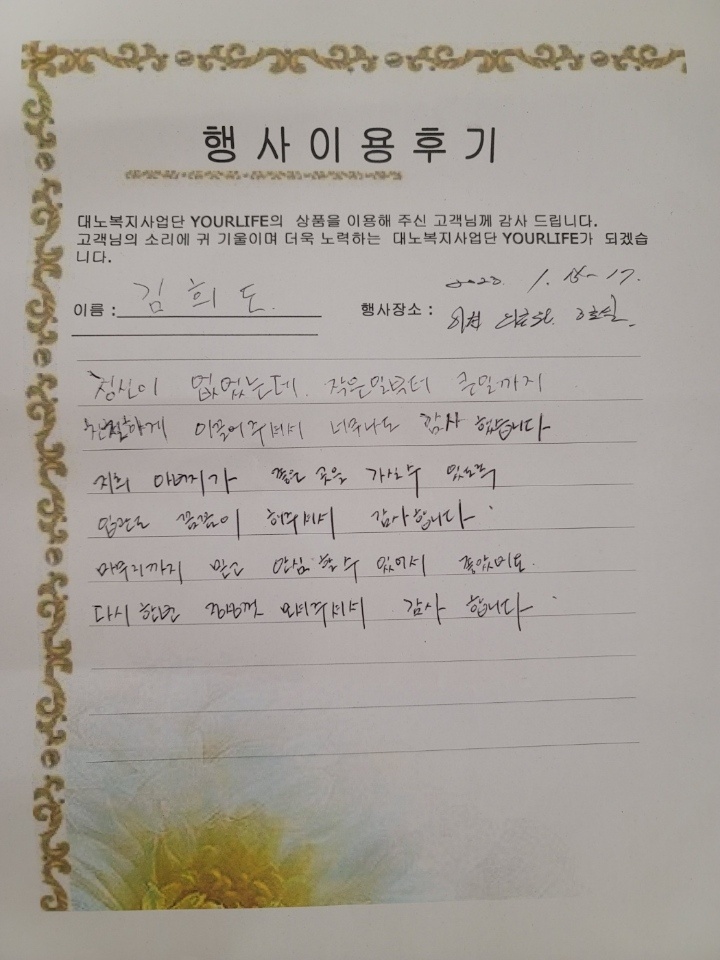 행사이용후기
대노복지사업단 YOURLIFE의 상품을 이용해 주신 고객님께 감사 드립니다.
고객님의 소리에 귀 기울이며 더욱 노력하는 대노복지사업단 YOURLIFE가 되겠습
니다.
2023. 1. 15-17.
이름 : 김희도. 행사장소 : 2호실.
정신이 없었는데. 작은일부터 큰일까지
친절하게 이끌어주셔서 너무나도 감사 했습니다
저희 아버지가 좋은 곳을 가실수 있도록
입관도 꼼꼼이 해주셔서 감사합니다.
마무리까지 믿고 안심 할수 있어서 좋았어요.
다시한번 정성껏 모셔주셔서 감사 합니다.